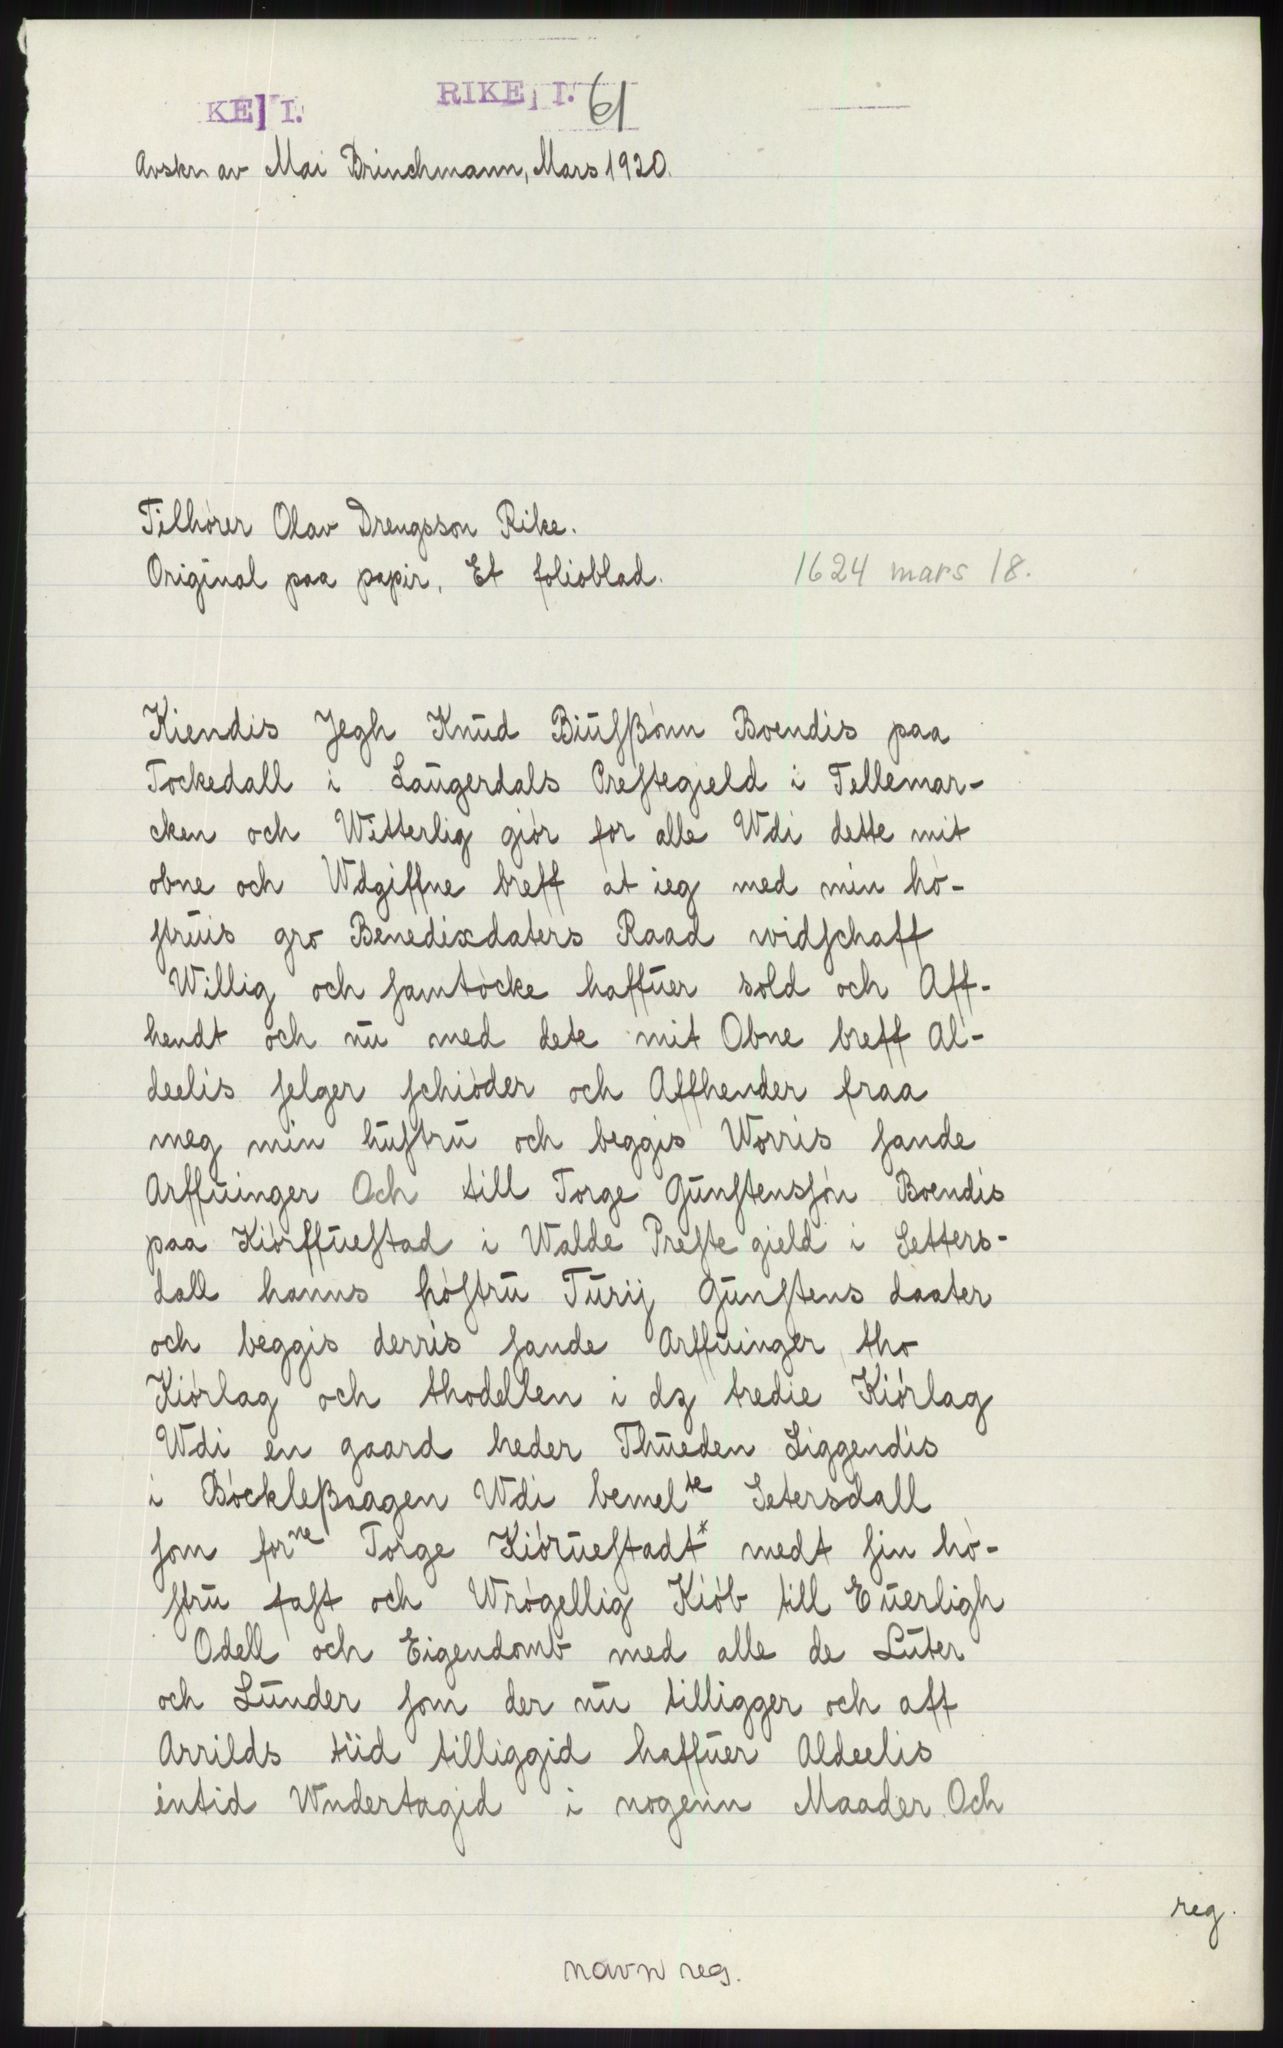 KE] I.
RIKE] I. 61
Avskr. av Mai Brinchmann, Mars 1920.
Tilhører Olav Drengsson Rike.
Original paa papir. Et folioblad.
1624 mars 18.
Kiendis Jegh Knud Biuſßònn Boendis paa
Tockedall i Laugerdals Preſtegield i Tellemar-
cken och Witterlig giór for alle Wdi dette mit
obne och Wdgiffne breff at ieg med min hó-
ſtruis gro Benedixdaters Raad widſchaff
Willig och ſamtócke haffuer sold och Aff-
hendt och nu med dete mit Obne breff Al-
deelis ſelger ſchióder och Affhender fraa
meg min huſtru och beggis Worris ſande
Arffuinger Och till Torge Gunſtensſón Boendis
paa Kiórffueſtad i Walde Preſte gield i Setters-
dall hanns hóſtru Turij Gunſtens daater
och beggis derris ſande Arffuinger tho
Kiórlag och thodellen i dz tredie Kiórlag
Wdi en gaard heder Thueden Liggendis
i Bóckleßaagen Wdi bemelte Setersdall
ſom forne Torge Kiórueſtadt* medt ſin hó-
ſtru faſt och Wrógellig Kiób till Euerligh
Odell och Eigendomb med alle de Luter
och Lunder ſom der nu tilligger och aff
Arrilds tiid tilliggid haffuer Aldeelis
intid Wndertagid i nogenn Maader Och
reg.
navn reg.